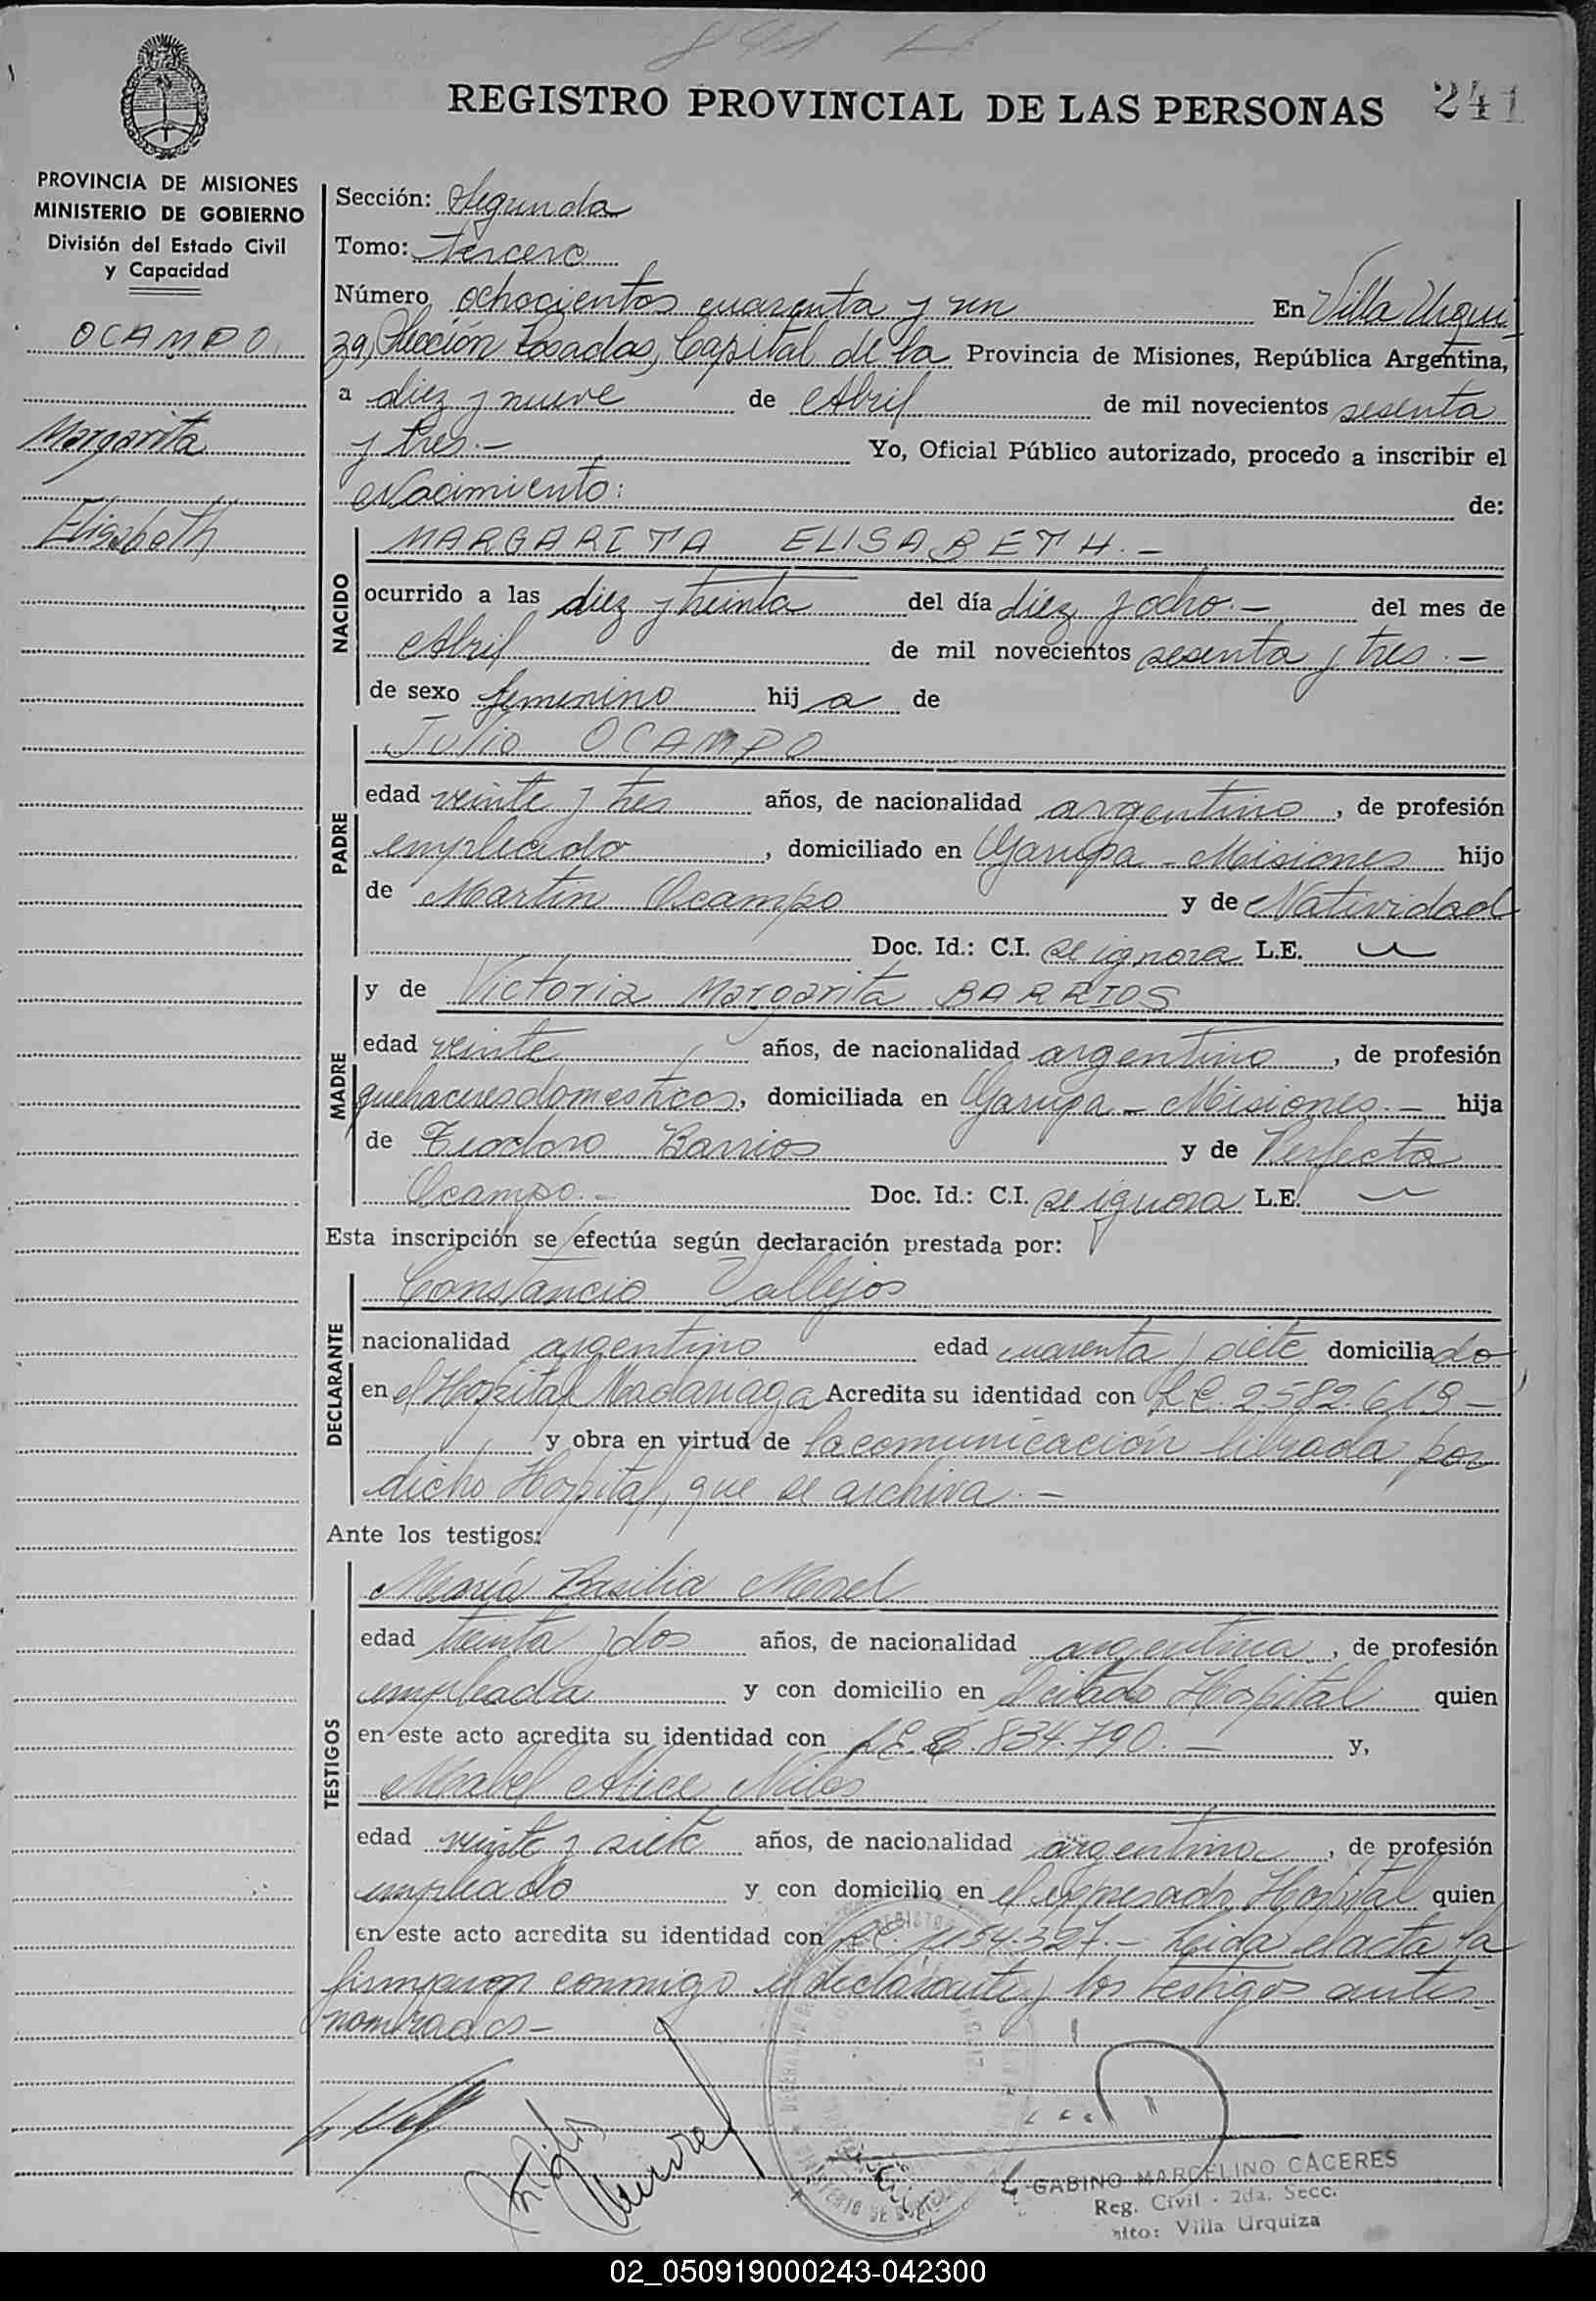 841
REGISTRO PROVINCIAL DE LAS PERSONAS 241
PROVINCIA DE MISIONES
MINISTERIO DE GOBIERNO
División del Estado Civil
y Capacidad
OCAMPO,
Margarita
Elisabeth
Sección: Segunda
Tomo: Tercero
Número ochocientos cuarenta y un En Villa Urqui
za, Sección Posadas, Capital de la Provincia de Misiones, República Argentina,
a diez y nueve de Abril de mil novecientos sesenta
y tres.- Yo, Oficial Público autorizado, procedo a inscribir el
Nacimiento: de:
NACIDO
MARGARITA ELISABETH.-
ocurrido a las diez y treinta del día diez y ocho.- del mes de
Abril de mil novecientos sesenta y tres.-
de sexo femenino hij a de
PADRE
Julio OCAMPO
edad veinte y tres años, de nacionalidad argentino, de profesión
empleado, domiciliado en Garupa - Misiones hijo
de Martin Ocampo y de Natividad
Doc. Id.: C.I. se ignora L.E.
MADRE
y de Victoria Margarita BARRIOS
edad veinte años, de nacionalidad argentino, de profesión
quehaceres domesticos, domiciliada en Garupa - Misiones.- hija
de Teodoro Barrios y de Perfecta
Ocampo.- Doc. Id.: C.I. se ignora L.E.
Esta inscripción se efectúa según declaración prestada por:
DECLARANTE
Constancio Vallejos
nacionalidad argentino edad cuarenta y siete domiciliado
en el Hospital Madariaga Acredita su identidad con L.E. 2582.619-
y obra en virtud de la comunicación librada por
dicho Hospital, que se archiva.-
Ante los testigos:
TESTIGOS
María Basilia Morel
edad treinta y dos años, de nacionalidad argentina, de profesión
empleada y con domicilio en citado Hospital quien
en este acto acredita su identidad con L.C. 6.834.790.- y,
Mabel Alice
edad veinte y siete años, de nacionalidad argentina, de profesión
empleado y con domicilio en el expresado Hospital quien
en este acto acredita su identidad con L.C. 1154.327.- Leida el acta la
firmaron conmigo el declarante y los testigos antes
nombrados-
GABINO MARCELINO CACERES
Reg. Civil - 2da. Secc.
Villa Urquiza
02_050919000243-042300